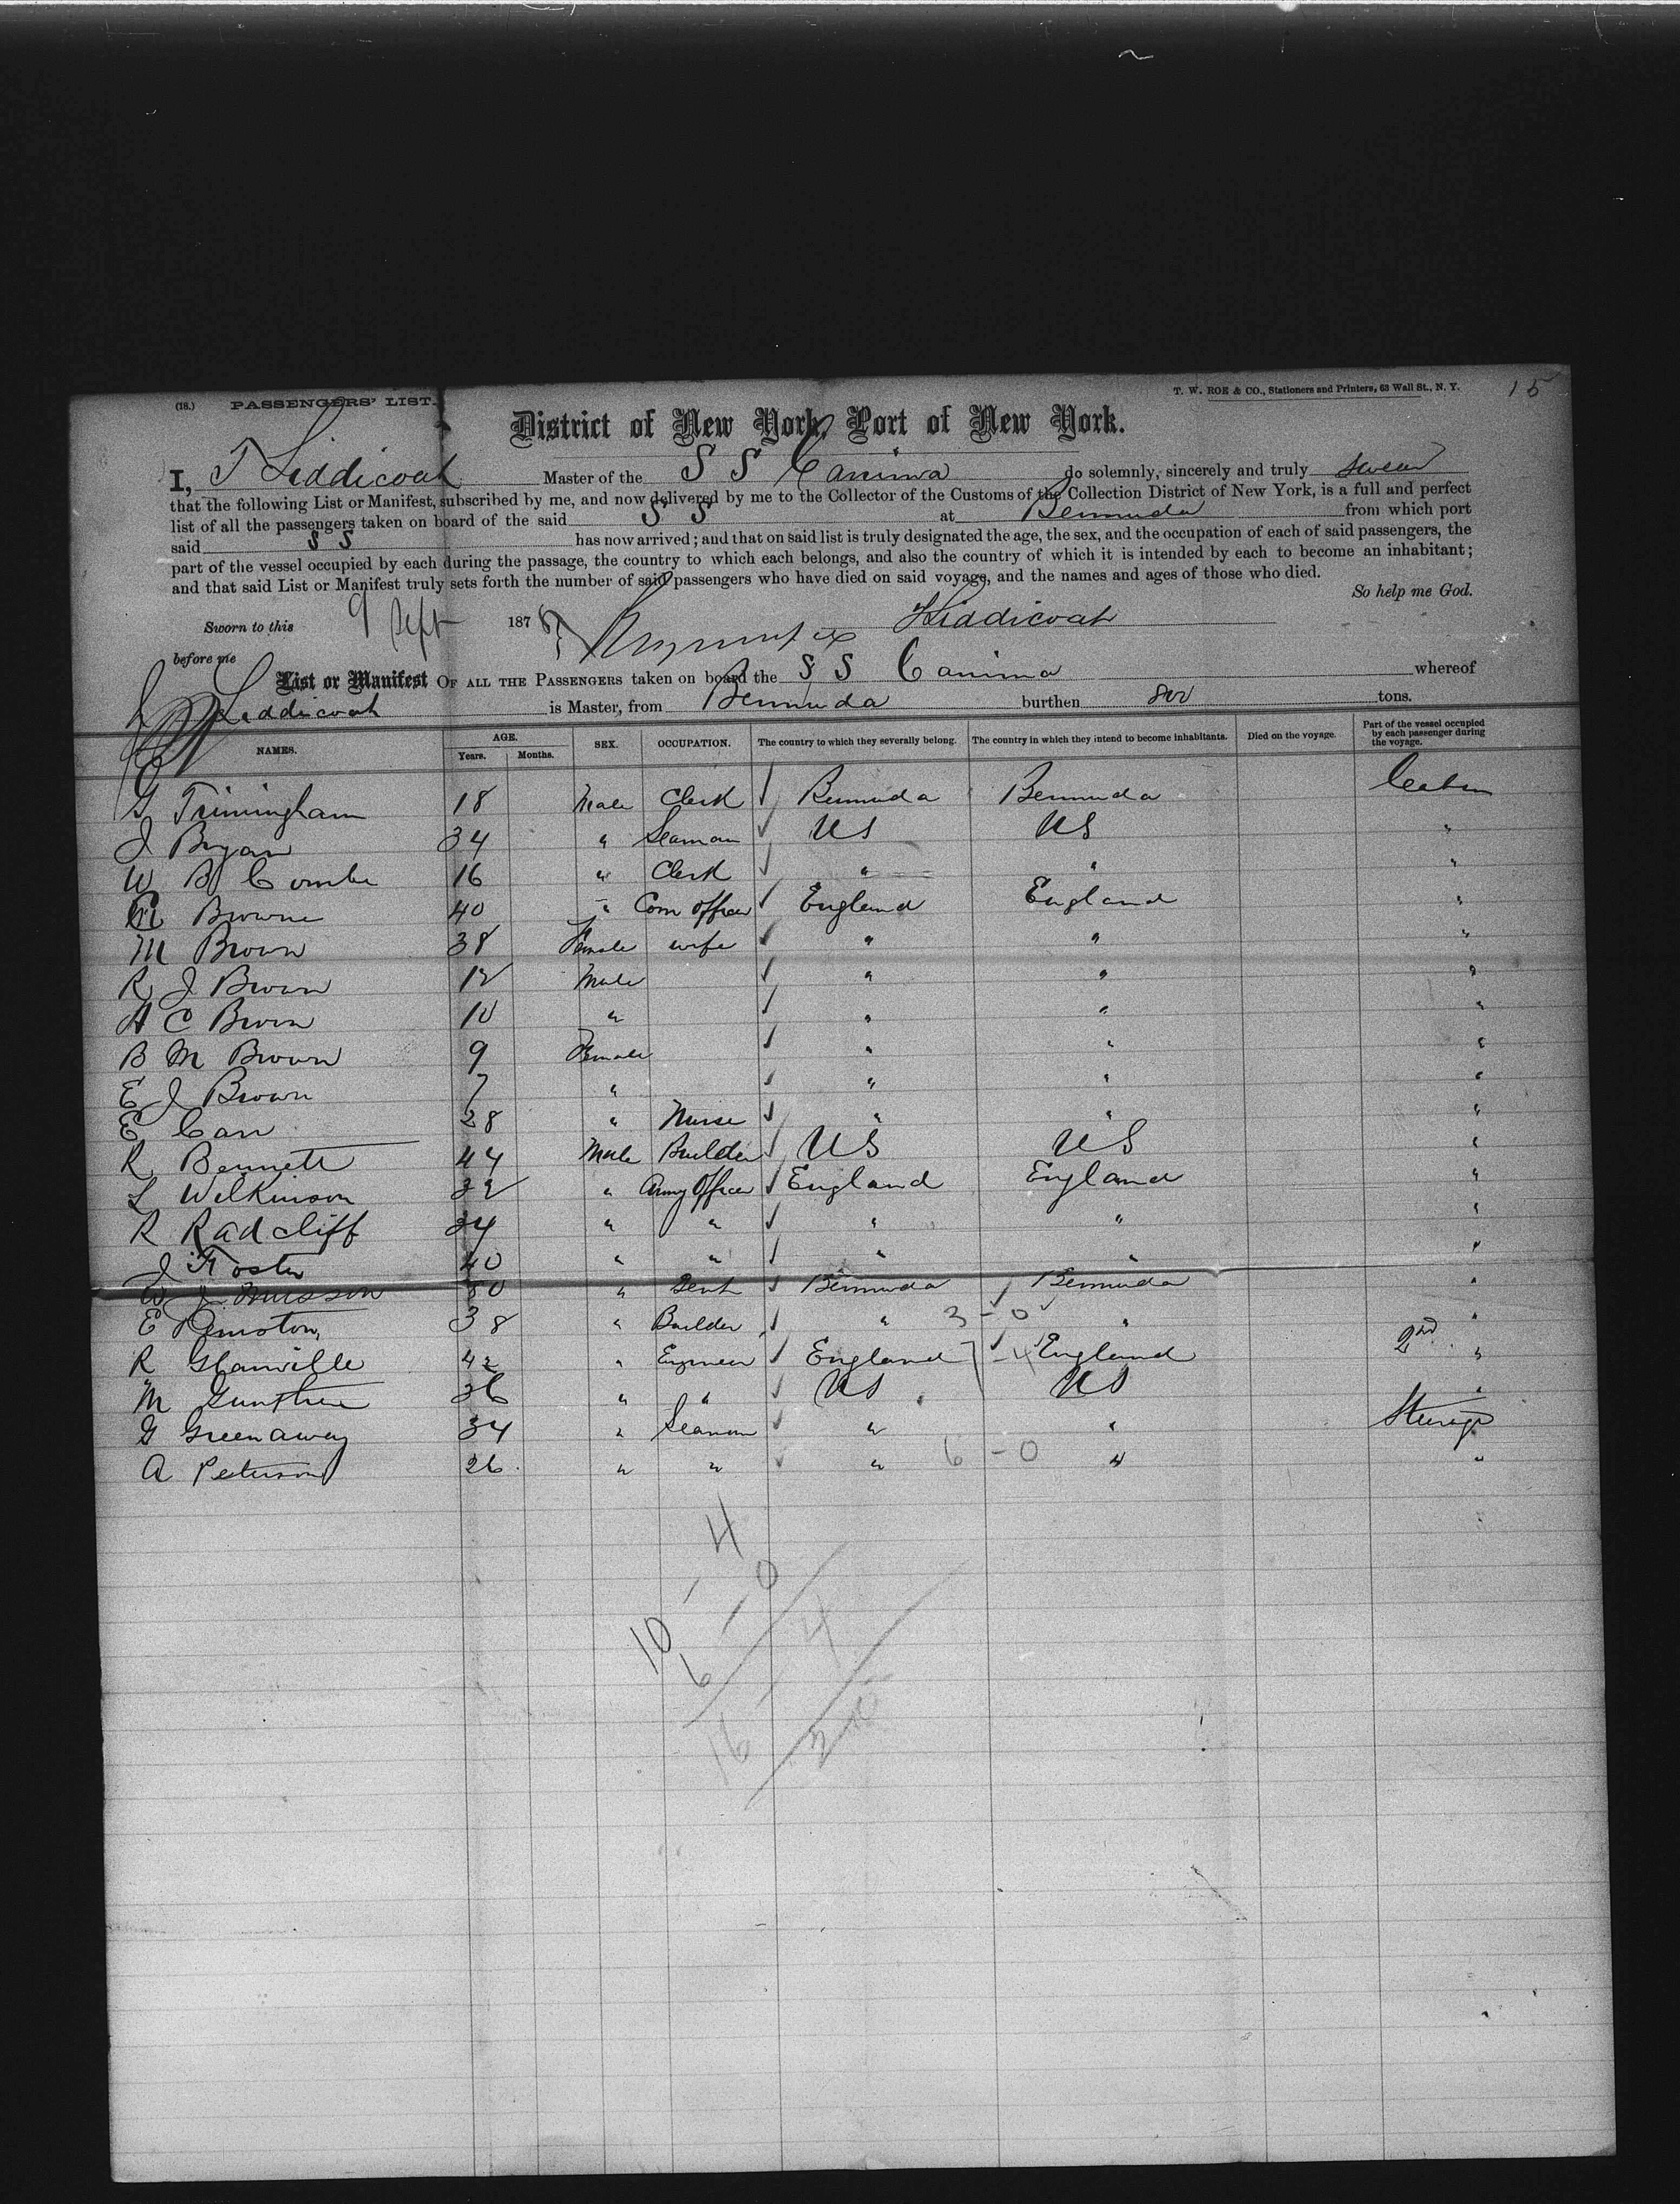 (18.) PASSENGERS' LIST. T. W. ROE & CO., Stationers and Printers, 63 Wall St., N. Y. 15
District of New York, Port of New York.
I, T Liddicoat Master of the S S Canima do solemnly, sincerely and truly swear
that the following List or Manifest, subscribed by me, and now delivered by me to the Collector of the Customs of the Collection District of New York, is a full and perfect
list of all the passengers taken on board of the said S S at Bermuda from which port
said S S has now arrived; and that on said list is truly designated the age, the sex, and the occupation of each of said passengers, the
part of the vessel occupied by each during the passage, the country to which each belongs, and also the country of which it is intended by each to become an inhabitant;
and that said List or Manifest truly sets forth the number of said passengers who have died on said voyage, and the names and ages of those who died.
So help me God.
Sworn to this 9 Sept 187 Liddicoat
before me
List or Manifest OF ALL THE PASSENGERS taken on board the S S Canima whereof
Liddicoat is Master, from Bermuda burthen 800 tons.
NAMES. AGE. Years. Months. SEX. OCCUPATION. The country to which they severally belong. The country in which they intend to become inhabitants. Died on the voyage. Part of the vessel occupied by each passenger during the voyage.
G Trimingham 18 Male Clerk ✓ Bermuda Bermuda Cabin
J Bryan 34 " Seaman ✓ US US "
W B Combe 16 " Clerk ✓ " " "
Browne 40 " Com Officer ✓ England England "
M Brown 38 Female wife ✓ " " "
R J Brown 12 Male ✓ " " "
A C Brown 10 " ✓ " " "
B M Brown 9 Female ✓ " " "
E J Brown 7 " ✓ " " "
E Carr 28 " Nurse ✓ " " "
R Bennett 44 Male Builder ✓ US US "
L Wilkinson 32 " Army Officer ✓ England England "
R Radcliff 34 " " ✓ " " "
J Foster 40 " " ✓ " " "
W J Musson 50 " Gent ✓ Bermuda Bermuda "
E Peniston 38 " Builder ✓ " 3 - 0 " "
R Glanville 42 " Engineer ✓ England - 4 England 2nd "
M Gunther 36 " " ✓ US US "
G Greenaway 34 " Seaman ✓ " " Steerage
A Peterson 26 " " ✓ " 6 - 0 " "
10 - 4
6 - 0
16 - 4
20